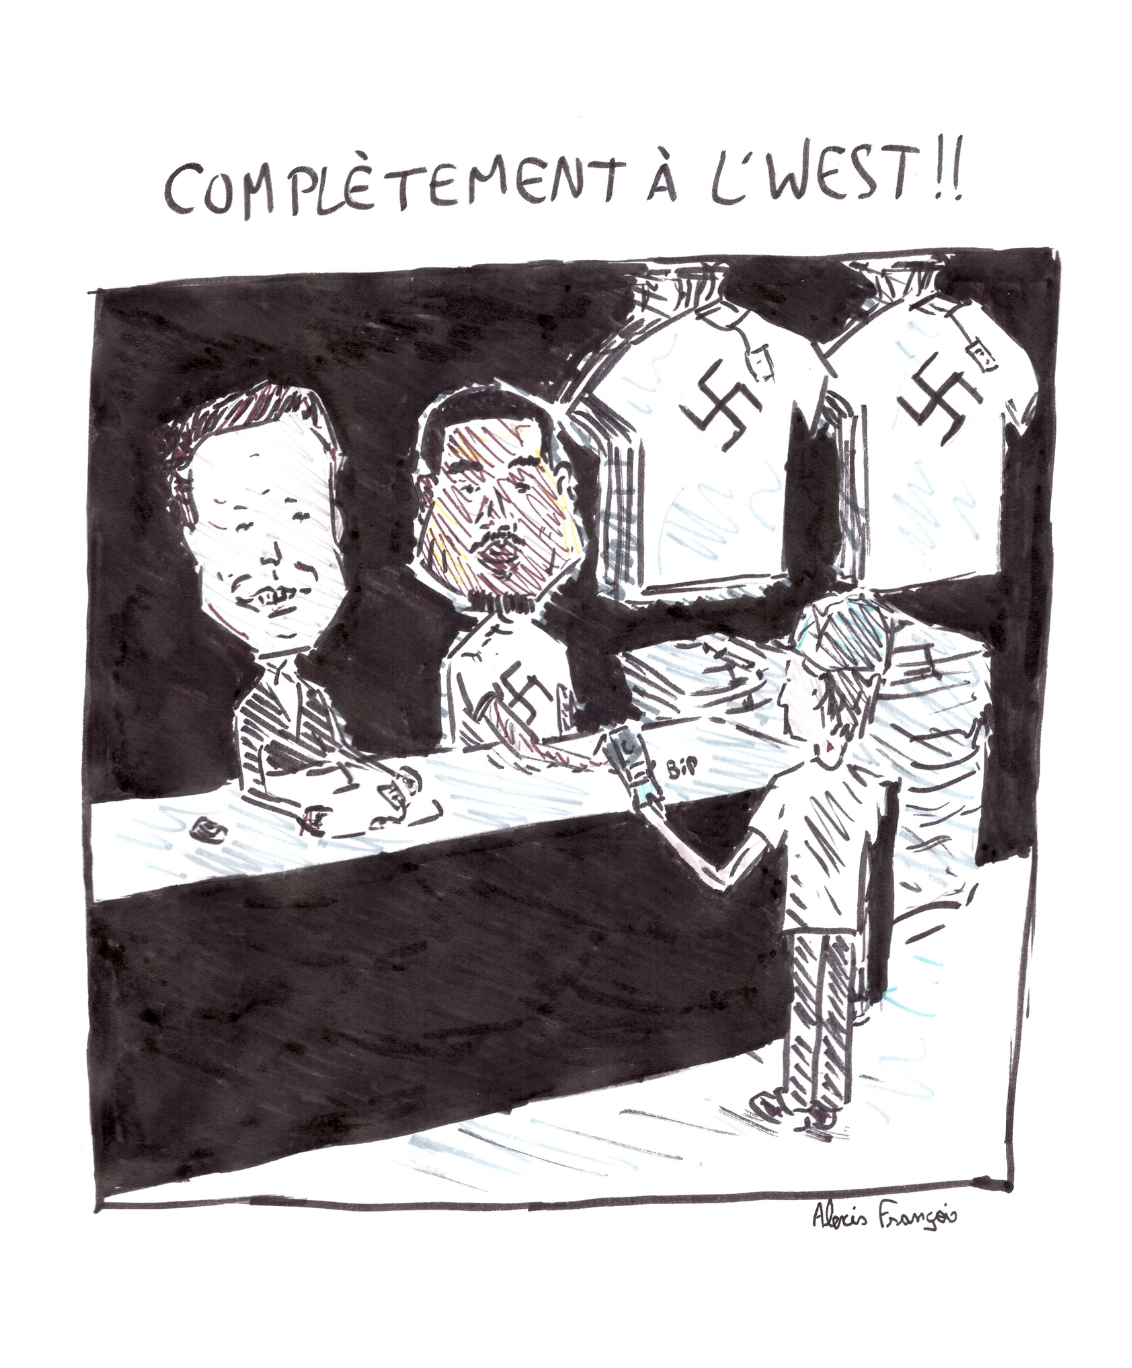 COMPLÈTEMENT À L'WEST!!
BiP
Alexis François